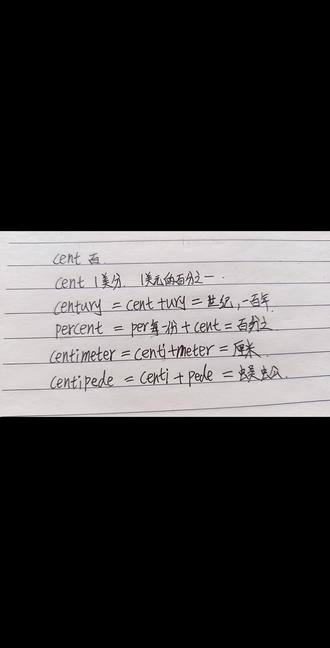 cent 百.
cent 1美分. 1美元的百分之一.
century = cent+ury = 世纪,一百年
percent = per每一份+cent = 百分之
centimeter = centi+meter = 厘米
centipede = centi + pede = 蜈蚣.